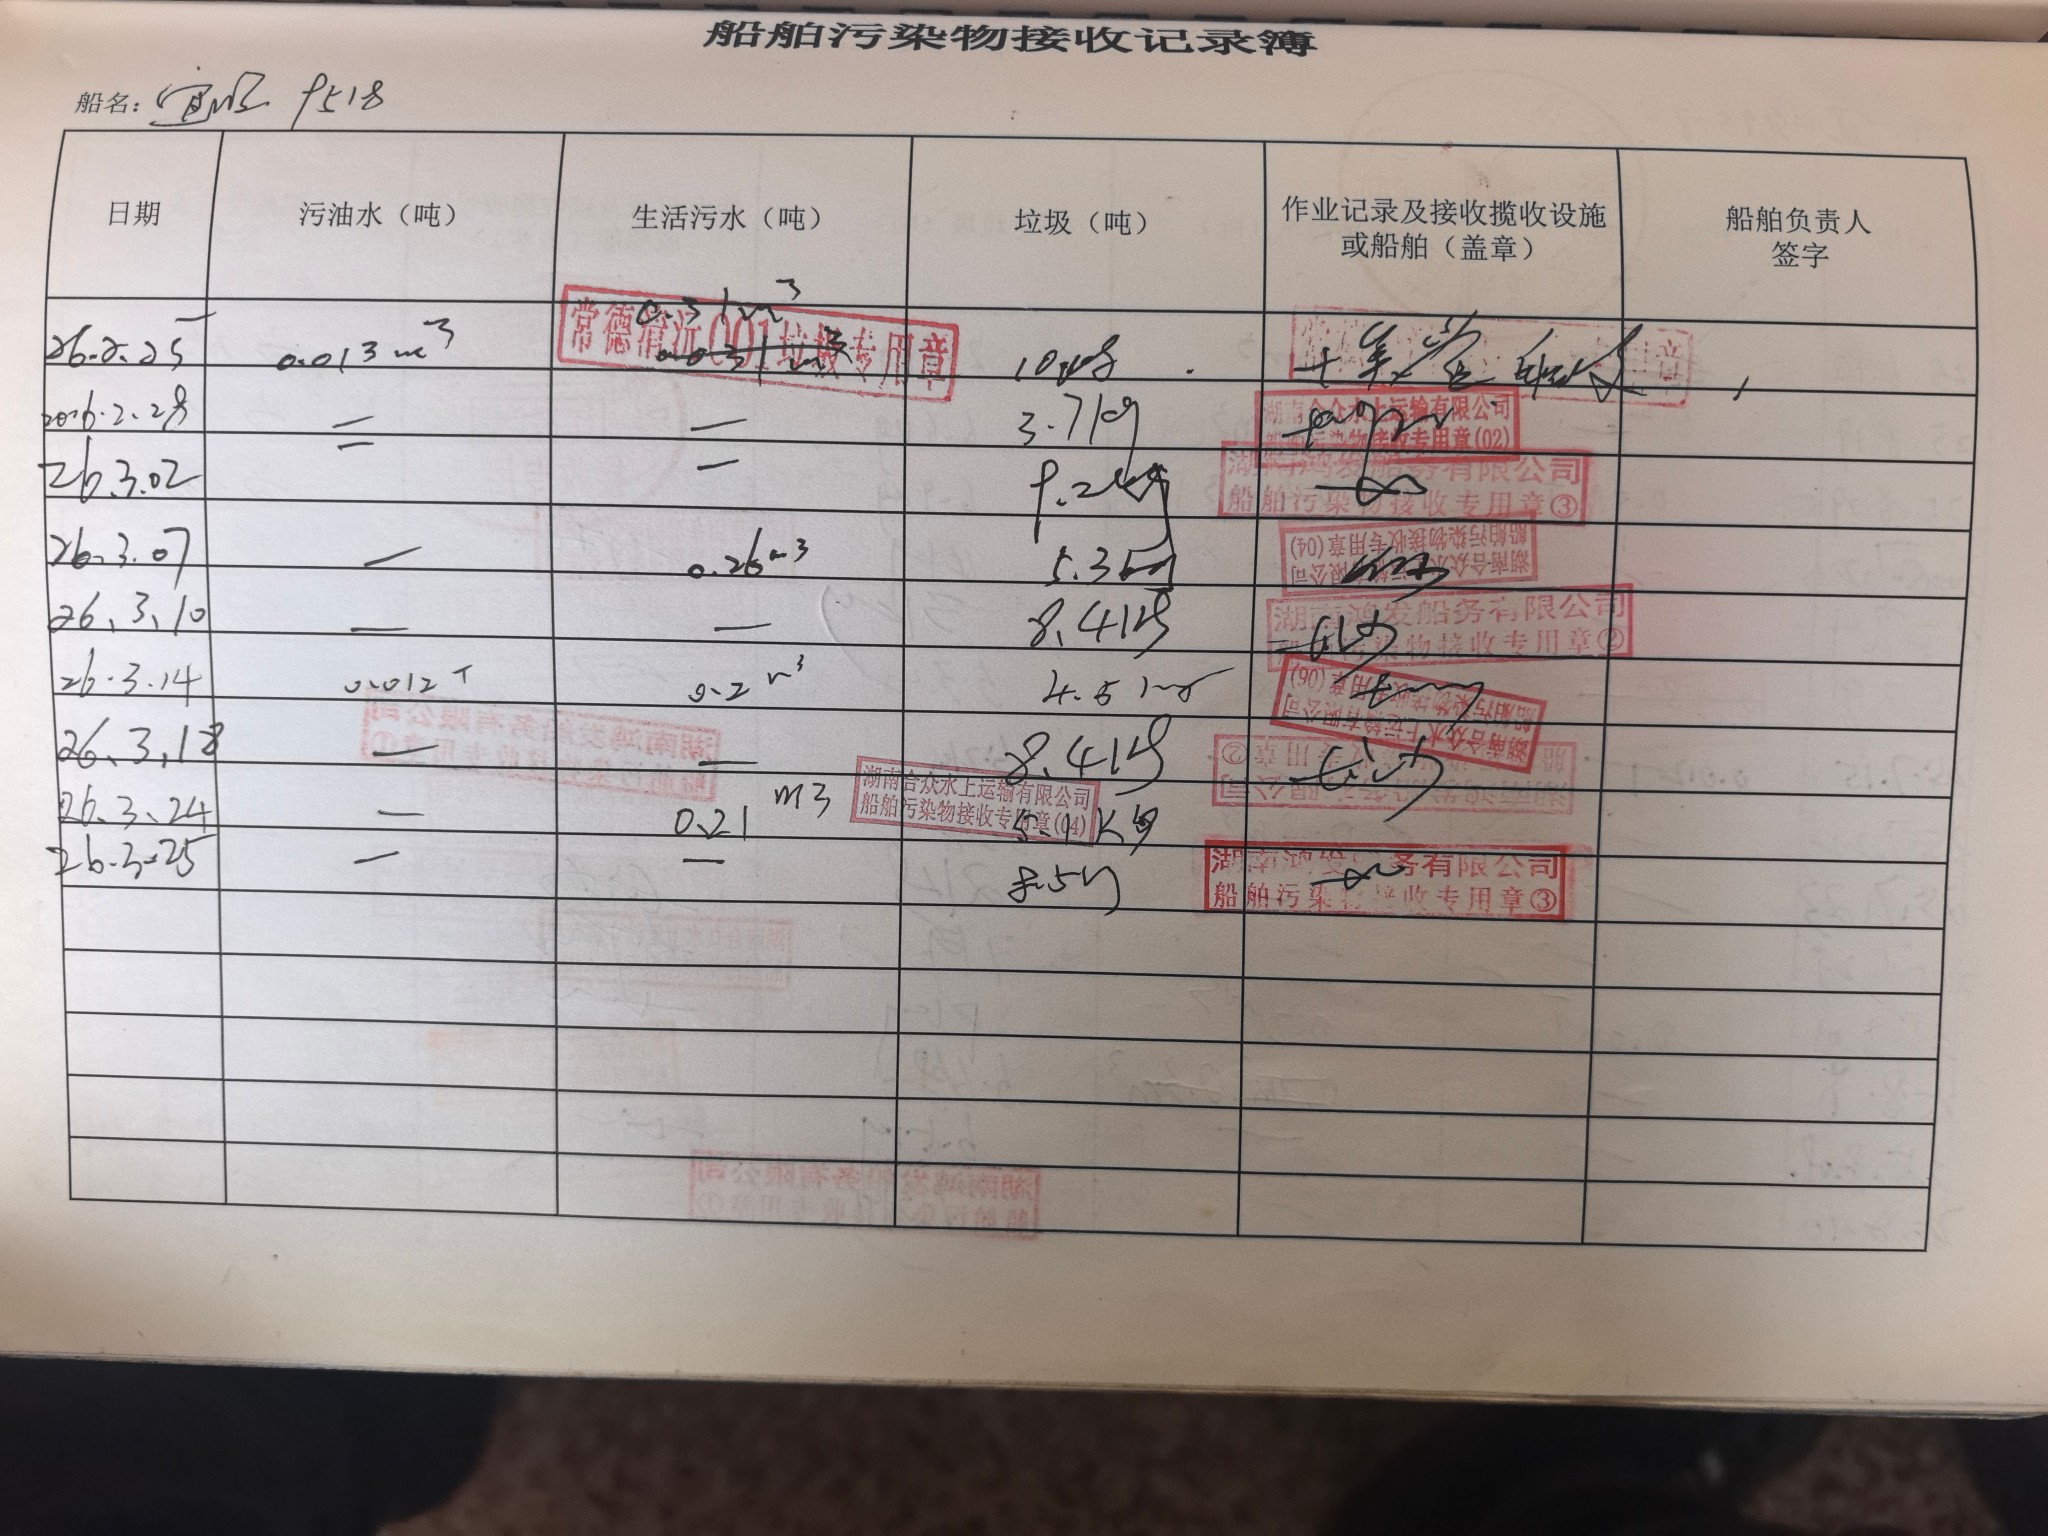 船舶污染物接收记录簿
船名：宜顺 9518
日期 污油水（吨） 生活污水（吨） 垃圾（吨） 作业记录及接收揽收设施或船舶（盖章） 船舶负责人签字
26.2.25 0.013m³ 0.31m³ 10kg
常德清沅001垃圾专用章
2026.2.28 — — 3.7kg
湖南合众水上运输有限公司
船舶污染物接收专用章(02)
26.3.02 — — 9.2kg
湖南鸿发船务有限公司
船舶污染物接收专用章③
26.3.07 — 0.26m³ 5.3kg
湖南合众水上运输有限公司
船舶污染物接收专用章(04)
26.3.10 — — 8.4kg
湖南鸿发船务有限公司
船舶污染物接收专用章②
26.3.14 0.012T 0.2m³ 4.5kg
湖南合众水上运输有限公司
船舶污染物接收专用章(06)
26.3.18 — — 8.4kg
湖南鸿发船务有限公司
船舶污染物接收专用章②
26.3.24 — 0.21m3 5.1kg
湖南合众水上运输有限公司
船舶污染物接收专用章(04)
26.3.25 — — 8.5kg
湖南鸿发船务有限公司
船舶污染物接收专用章③